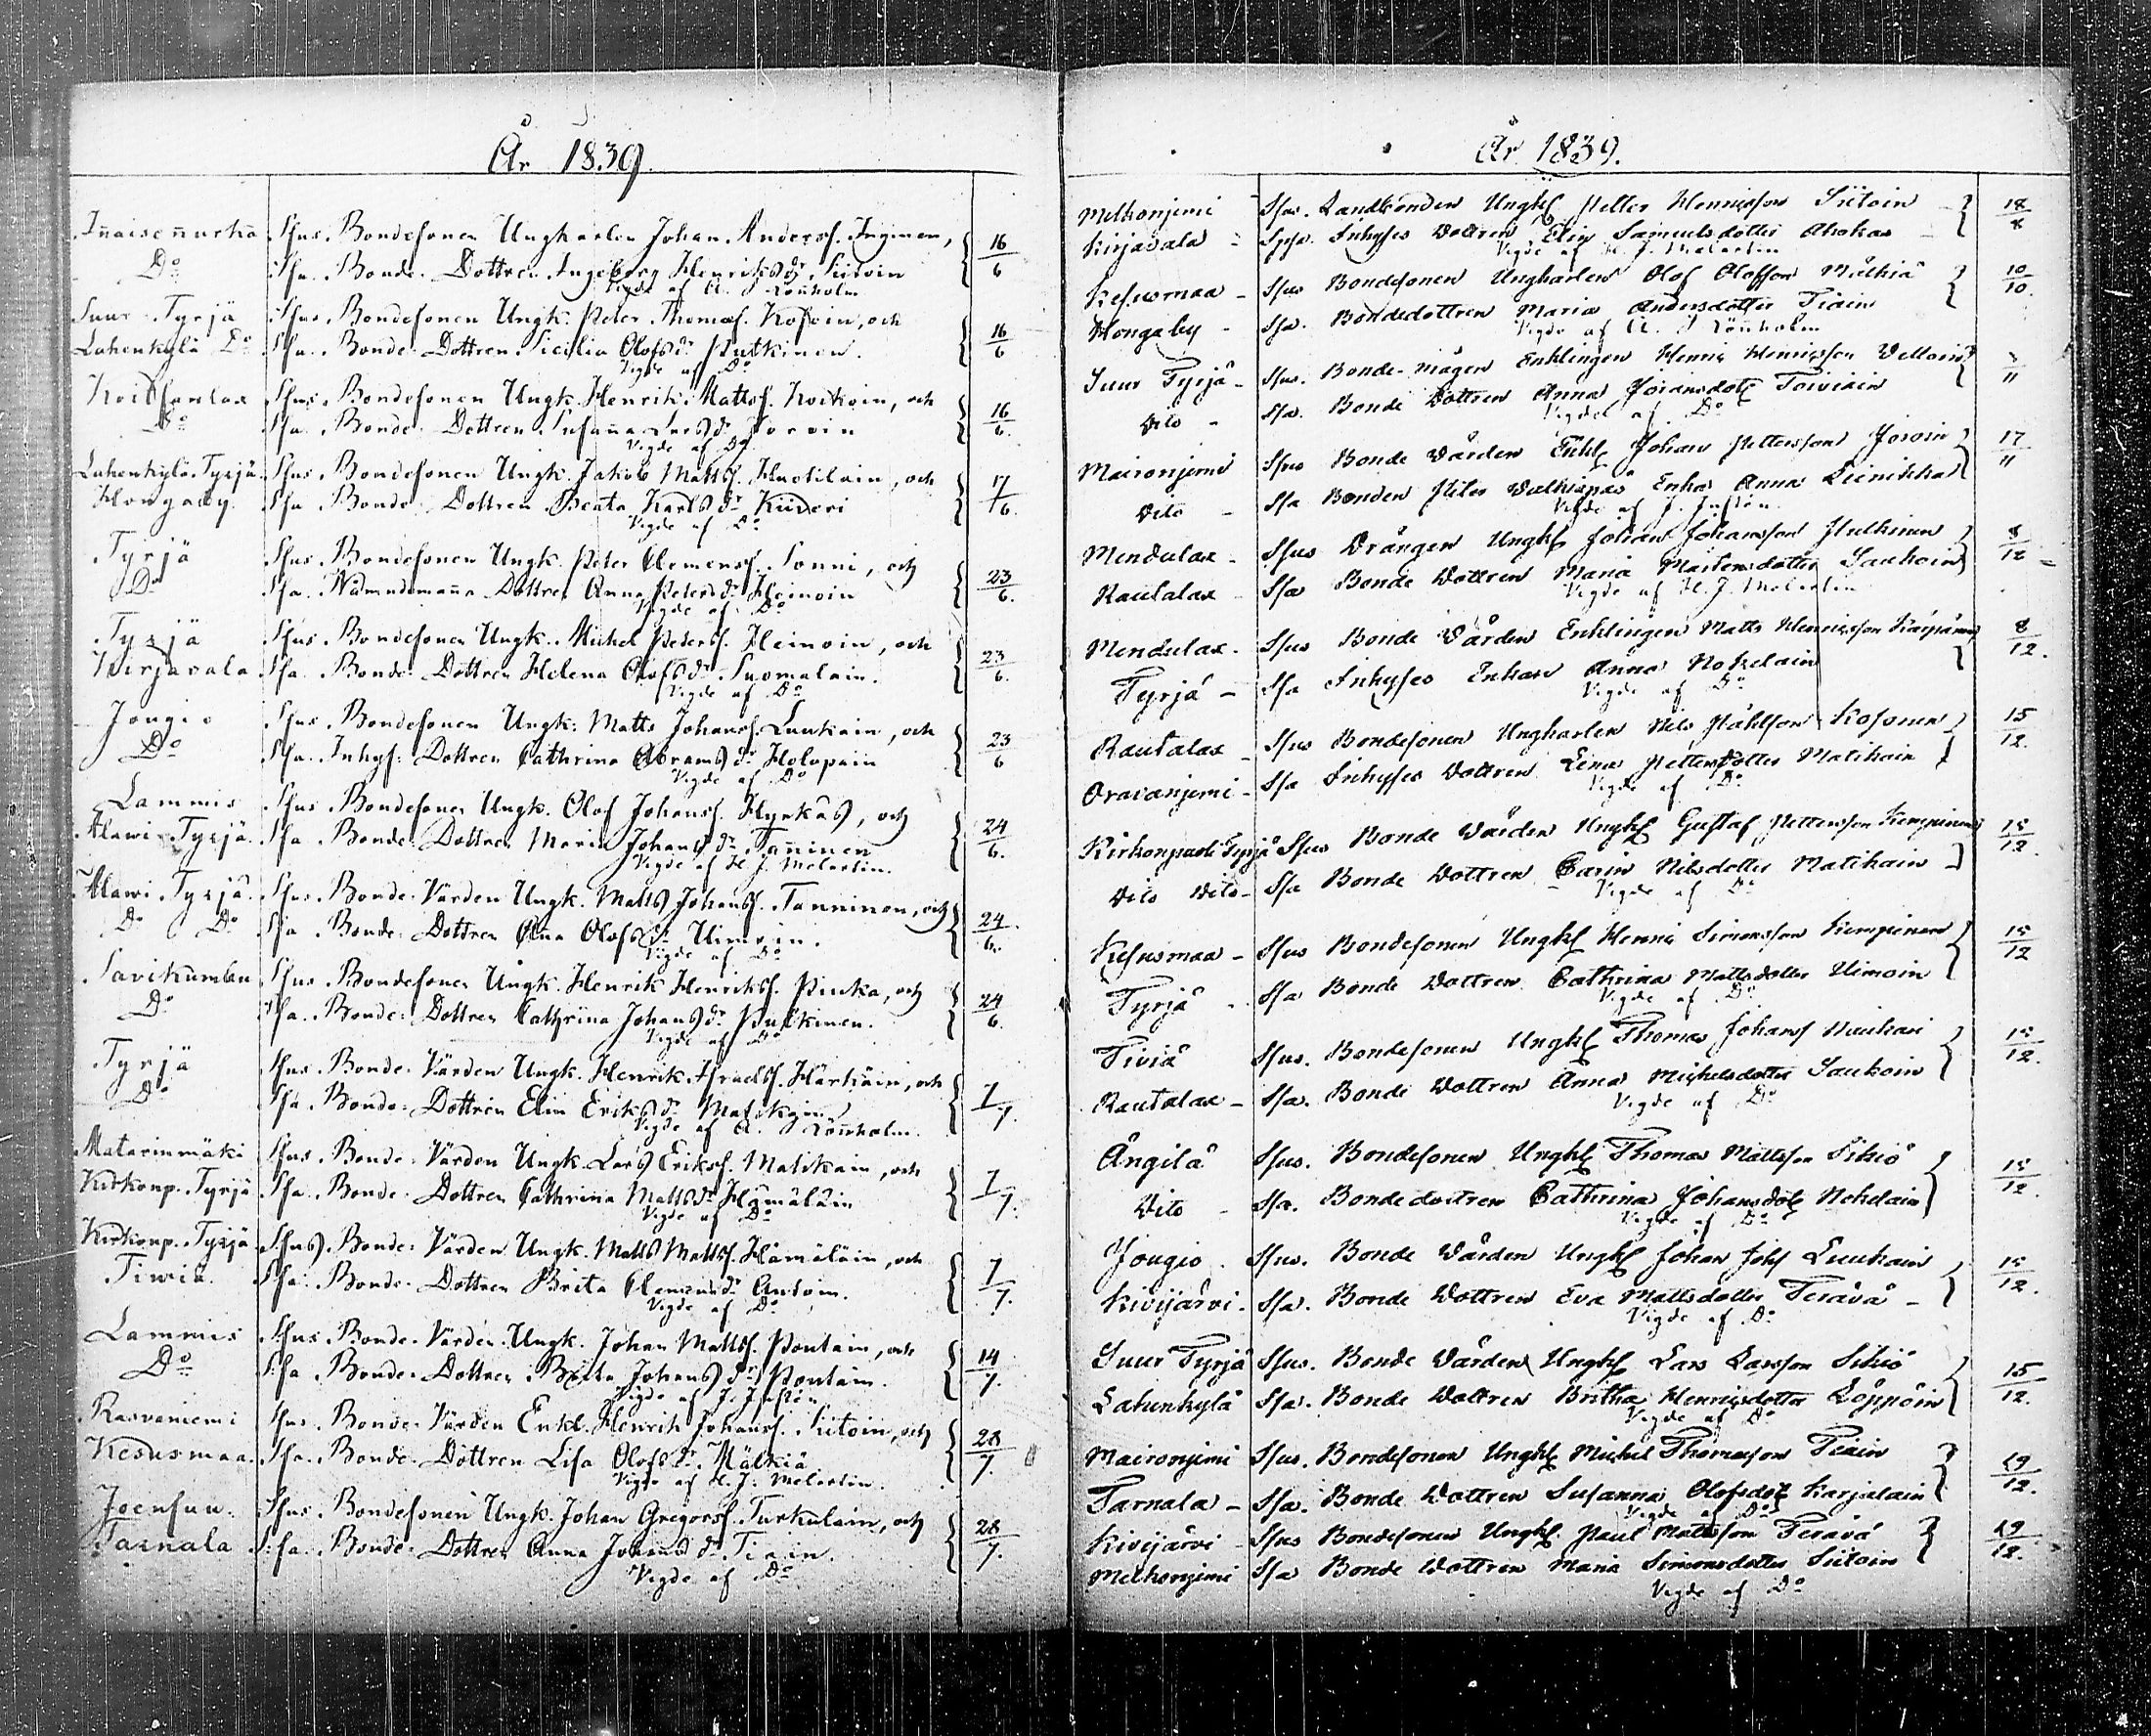 År 1839.
Innaisennurkka Spus. Bondesonen Ungkarlen Johan Anderss. Inginen, 16/6
Do Spa. Bonde Dottren Ingeborg Henriksdr Siitoin
Vigde af A. J Lönnholm
Suur Tyrjä Spus. Bondesonen Ungk. Peter Thomass. Kosoin, och 16/6
Lahenkylä Do Spa. Bonde Dottren Sicilia Olofsdr Putkinen.
Vigde af Do
Koitsanlax Spus. Bondesonen Ungk. Henrik Mattss. Koikoin, och 16/6.
Do Spa. Bonde Dottren Susanna Larsdr Joroin
Vigde af Do.
Lahenkylä Tyrjä. Spus. Bondesonen Ungk. Jakob Mattss. Huotilain, och 17/6.
Hongaby. Spa Bonde Dottren Beata Karlsdr Kiiveri
Vigde af Do
Tyrjä Spus. Bondesonen Ungk. Peter Clemenss. Sonni, och 23/6.
Do Spa. Nämndemanna Dottren Anna Petersdr Heinoin
Vigde af Do
Tyrjä Spus. Bondesonen Ungk. Michel Peterss. Heinoin, och 23/6.
Kirjavala Spa. Bonde Dottren Helena Olofsdr Suomalain.
Vigde af Do
Jougio Spus. Bondesonen Ungk. Matts Johanss. Luukain, och 23/6
Do Spa. Inhys. Dottren Cathrina Abramsdr Holopain
Vigde af Do
Lammis Spus. Bondesonen Ungk. Olof Johanss. Hyrkäs, och 24/6.
Alawi Tyrjä. Spa Bonde Dottren Maria Johansdr Tanninen
Vigde af H. J. Melartin.
Alawi Tyrjä. Spus. Bonde Vården Ungk. Matts Johanss. Tanninen, och 24/6.
Do Do Spa Bonde Dottren Anna Olofsdr Uimoin.
Vigde af Do
Savikumbu Spus. Bondesonen Ungk. Henrik Henrikss. Piuka, och 24/6.
Do Spa. Bonde Dottren Cathrina Johansdr Pulkinen.
Vigde af Do
Tyrjä Spus. Bonde Vården Ungk. Henrik Israelss. Härkäin, och 7/7.
Do Spa Bonde Dottren Elin Eriksdr Matikain
Vigde af A. J Lönnholm.
Matarinmäki Spus. Bonde Vården Ungk. Lars Erikss. Matikain, och 7/7.
Kirkonp. Tyrjä Spa. Bonde Dottren Cathrina Mattsdr Hämäläin
Vigde af Do
Kirkonp. Tyrjä Spus. Bonde Vården Ungk. Matts Mattss. Hämäläin, och 7/7.
Tiwiä. Spa. Bonde Dottren Brita Clemensdr Antoin.
Vigde af Do
Lammis Spus. Bonde Vården Ungk. Johan Mattss. Pontain, och 14/7.
Do Spa Bonde Dottren Brita Johansdr Pontain.
Vigde af J. Justén
Rasvaniemi Spus. Bonde Vården Enkl. Henrik Johanss. Siitoin, och 28/7.
Kesusmaa. Spa. Bonde Dottren Lisa Olofsdr Mälkiä
Vigde af H. J. Melartin.
Joensuu. Spus. Bondesonen Ungk. Johan Gregorss. Turkulain, och 28/7.
Tarnala Spa. Bonde Dottren Anna Johansdr Tiain.
Vigde af Do
År 1839.
Melkonjemi Spus. Landbonden Ungkl Petter Henricsson Siitoin 18/8
Kirjavala Spa. Inhyses Dottren Elin Samuelsdotter Ahokas
Vigde af H. J. Melartin
Kesusmaa Spus Bondesonen Ungkarlen Olof Olofsson Mälkiä 10/10.
Hongaby Spa. Bondedottren Maria Andersdotter Tiain
Vigde af A. J Lönnholm
Suur Tyrjä Spus. Bonde-mågen Enklingen Henric Henricsson Velloin /11
Dito Spa. Bonde Dottren Anna Johansdott Toiviain
Vigde af Do
Maironjemi Spus Bonde Vården Enkl Johan Pettersson Joroin 17/11
Dito Spa Bonden Enka Anna Leinikka
Vigde af J. Justén.
Mendulax Spus Drängen Ungkl Johan Johansson Pulkinen 8/12
Rautalax Spa Bonde Dottren Maria Mårtensdotter Saukoin
Vigde af H. J. Melartin
Mendulax. Spus Bonde Vården Enklingen Matts Henricsson Kärpänen 8/12.
Tyrjä Spa Inhyses Enkan Anna Nokelain
Vigde af Do
Rautalax Spus Bondesonen Ungkarlen Nils Påhlsson Kosonen 15/12.
Oravanjemi Spa Inhyses Dottren Lena Pettersdotter Matikain
Vigde af Do
Kirkonpuoli Tyrjä Spus Bonde Vården Ungkl Gustaf Pettersson Kempinen 15/12
Dito Dito Spa Bonde Dottren Carin Nilsdotter Matikain
Vigde af Do
Kesusmaa Spus Bondesonen Ungkl Henric Simonsson Kempinen 15/12
Tyrjä Spa Bonde Dottren Cathrina Mattsdotter Uimoin
Vigde af Do
Tiviä Spus. Bondesonen Ungkl Thomas Johanss Naukari 15/12.
Rautalax Spa. Bonde Dottren Anna Michelsdotter Saukoin
Vigde af Do
Ängilä Spus. Bondesonen Ungkl Thomas Mattsson Sikiö 15/12.
Dito Spa. Bondedottren Cathrina Johansdott Nokelain
Vigde af Do
Jougio. Spus. Bonde Vården Ungkl Johan Johs Luukain 15/12.
Kivijärvi. Spa. Bonde Dottren Eva Mattsdotter Terävä
Vigde af Do
Suur Tyrjä Spus. Bonde Vården Ungkl Lars Larsson Sikiö 15/12.
Lahenkylä Spa. Bonde Dottren Britha Henricsdotter Löppöin
Vigde af Do
Maironjemi Spus. Bondesonen Ungkl Michel Thomasson Tiain 29/12.
Tarnala Spa. Bonde Dottren Susanna Olofsdott Karjalain
Vigde af Do
Kivijärvi Spus Bondesonen Ungkl. Paul Mattsson Terävä 29/12.
Melkonjemi Spa Bonde Dottren Maria Simonsdotter Siitoin
Vigde af Do